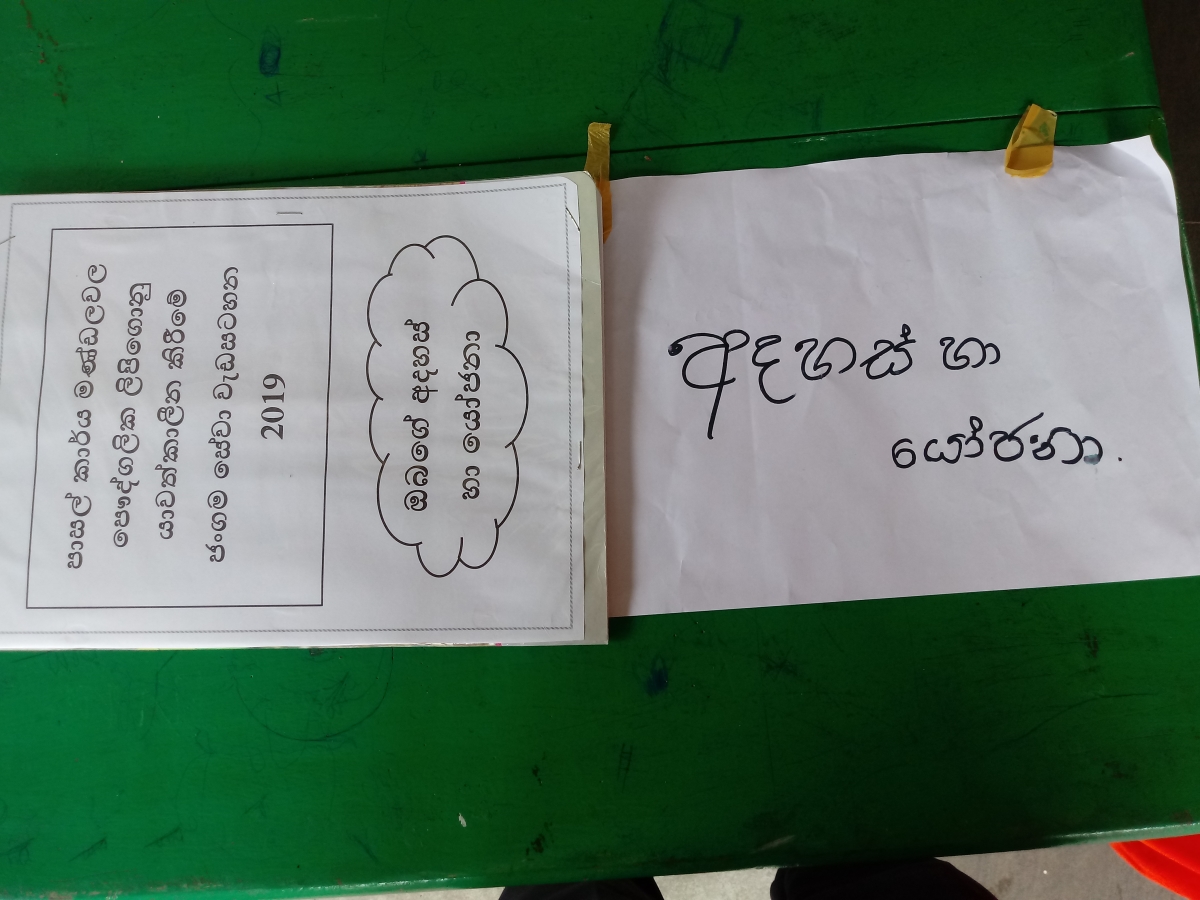 පාසල් කාර්ය මණ්ඩලවල
පෞද්ගලික ලිපිගොනු
යාවත්කාලීන කිරීමේ
ජංගම සේවා වැඩසටහන
2019
ඔබගේ අදහස්
හා යෝජනා
අදහස් හා
යෝජනා.